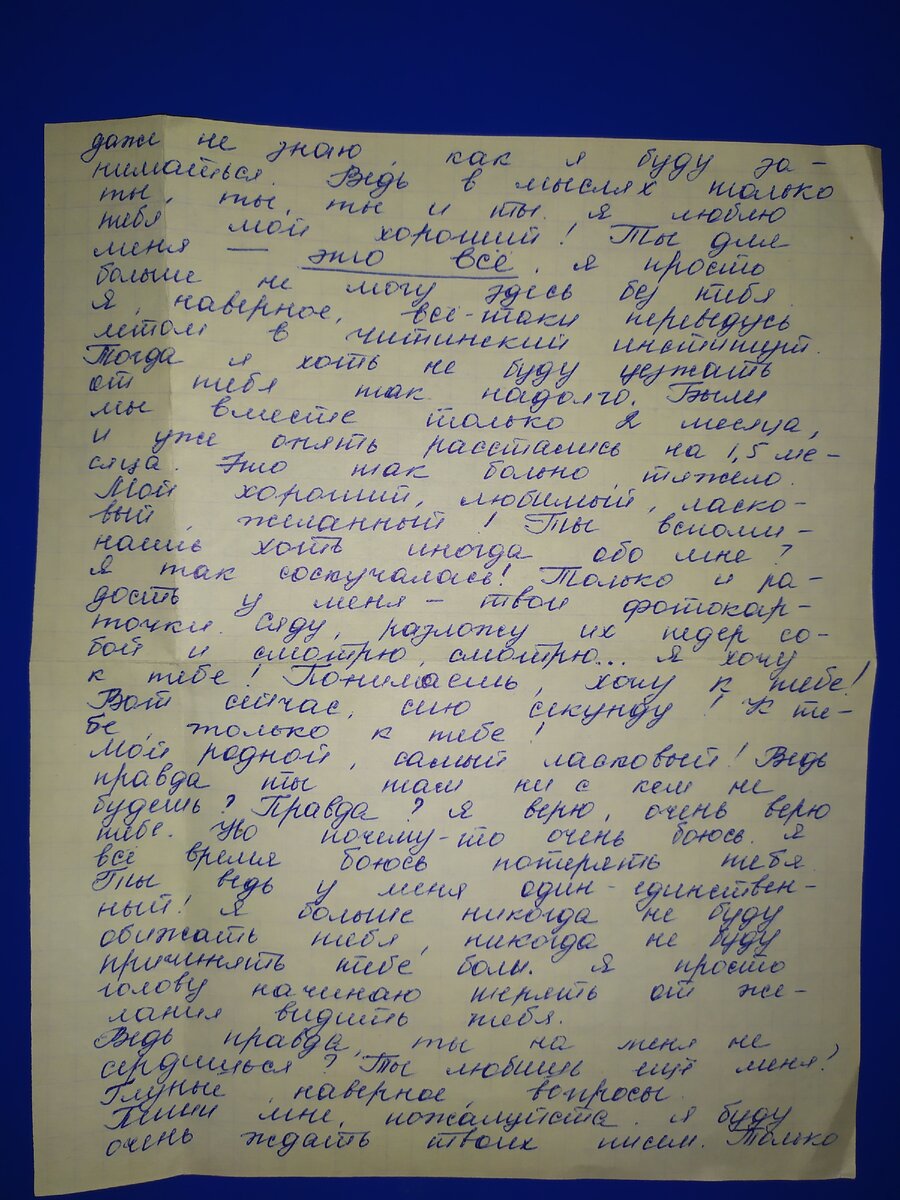 даже не знаю, как я буду за-
ниматься. Ведь в мыслях только
ты, ты, ты и ты. Я люблю
тебя мой хороший! Ты для
меня — это всё. Я просто
больше не могу здесь без тебя.
Я, наверное, всё-таки переведусь
летом в читинский институт.
Тогда я хоть не буду уезжать
от тебя так надолго. Были
мы вместе только 2 месяца,
и уже опять расстались на 1,5 ме-
сяца. Это так больно, тяжело.
Мой хороший, любимый, ласко-
вый, желанный! Ты вспоми-
наешь хоть иногда обо мне?
Я так соскучалась! Только и ра-
дость у меня – твои фотокар-
точки. Сяду, разложу их перед со-
бой и смотрю, смотрю... Я хочу
к тебе! Понимаешь, хочу к тебе!
Вот сейчас, сию секунду! К те-
бе, только к тебе!
Мой родной, самый ласковый! Ведь
правда ты там ни с кем не
будешь? Правда? Я верю, очень верю
тебе. Но почему-то очень боюсь. Я
всё время боюсь потерять тебя.
Ты ведь у меня один-единствен-
ный! Я больше никогда не буду
обижать тебя, никогда не буду
причинять тебе боли. Я просто
голову начинаю терять от же-
лания видить тебя.
Ведь правда, ты на меня не
сердишься? Ты любишь ещё меня?
Глупые, наверное, вопросы.
Пиши мне, пожалуйста. Я буду
очень ждать твоих писем. Только